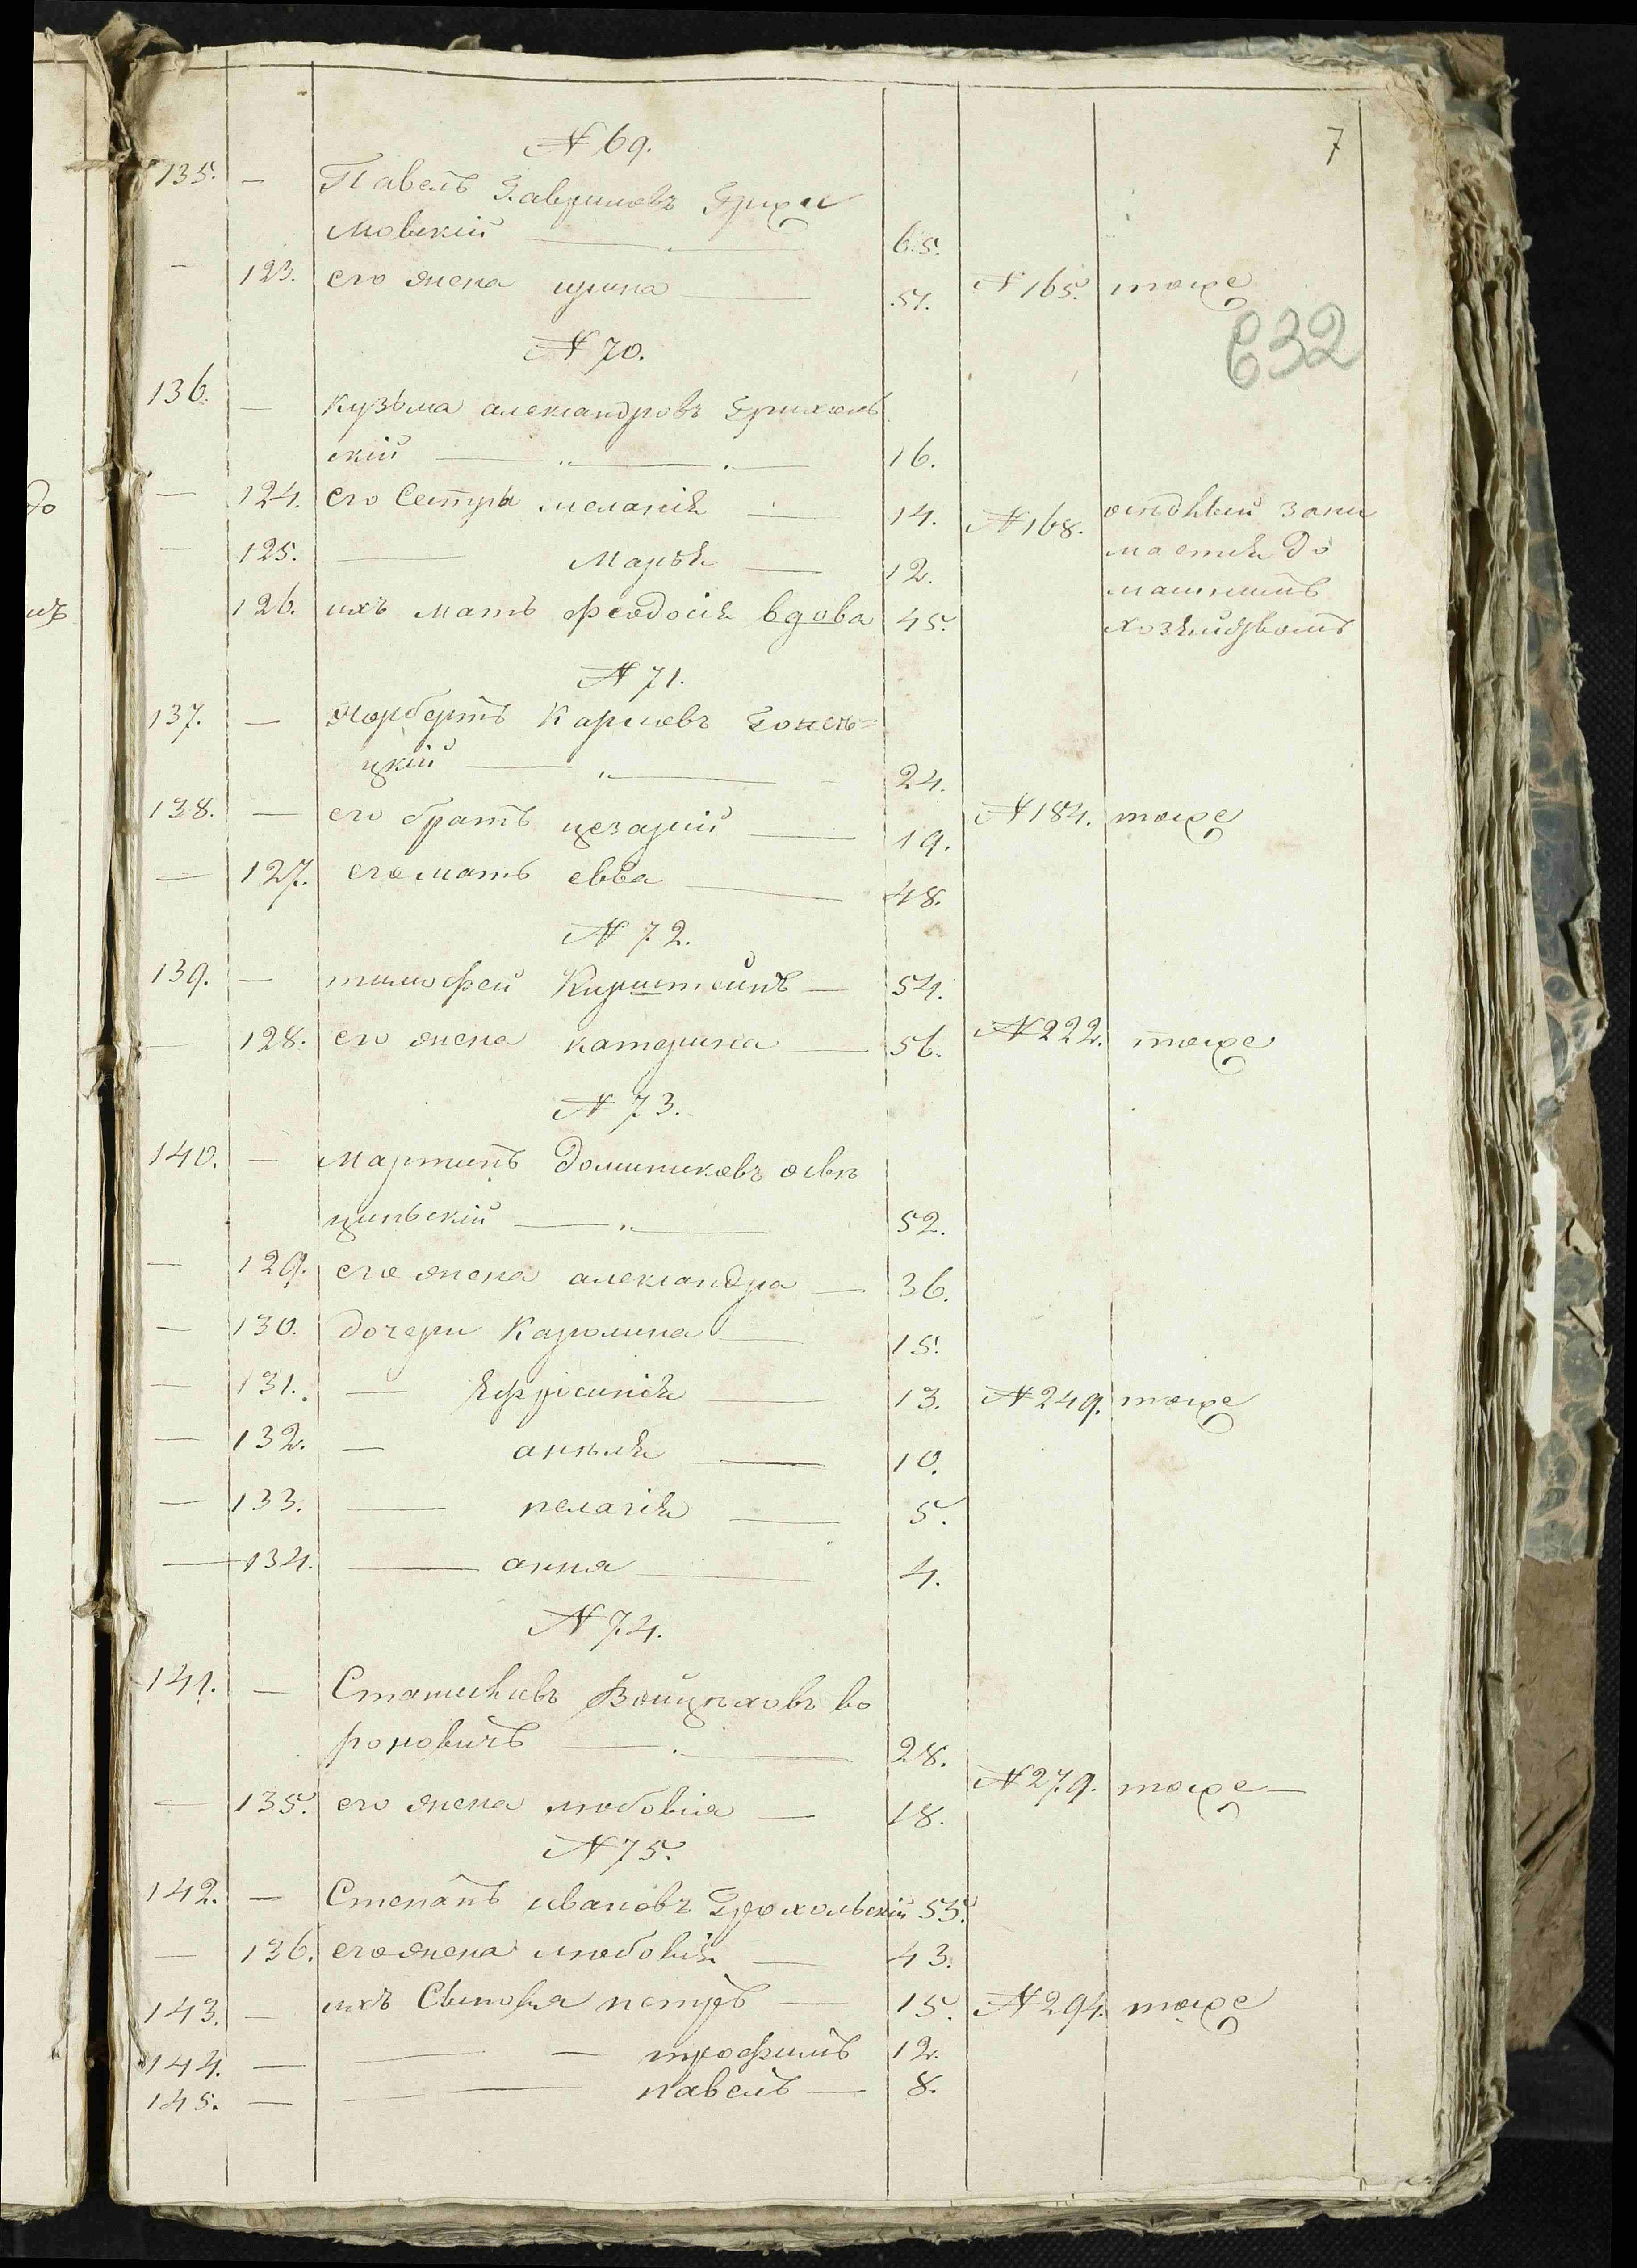 7
N 69.
135. — Павелъ Гавриловъ Грихи
мовский — 65.
— 123. его жена ирина — 51. N 165. тоже
632
N 70.
136. — Кузьма александровъ Грихиль
ский — 16.
— 124. его Сестры меланія — 14. N 168. осѣдлый зани
— 125. — Марья — 12. мается до
126. ихъ мать феодосія вдова 45. машнимъ
хозяйствомъ
N 71.
137. — Норбертъ Карловъ =
цкій — 24.
138. — его братъ цезарій — 19. N 184. тоже
— 127. его мать евва — 48.
N 72.
139. — тимофей Кирштейнъ — 54.
— 128. его жена катерина — 56. N 222. тоже
N 73.
140. — Мартинъ Доминиковъ освѣ
циньскій — 52.
— 129. его жена александра — 36.
— 130. дочери Каролина — 15.
— 131. — Яфросинія — 13. N 249. тоже
— 132. — анѣля — 10.
— 133. — пелагія — 5.
— 134. — анна — 4.
N 74.
141. — Станиславъ Войцѣховъ во
роновичъ — 28.
— 135. его жена любовія — 18. N 279. тоже —
N 75.
142. — Степанъ ивановъ Грохольскій 55.
— 136. его жена любовія — 43.
143. — ихъ Сыновья петръ — 15. N 294. тоже
144. — — — трофимъ 12.
145. — — — павелъ — 8.
до